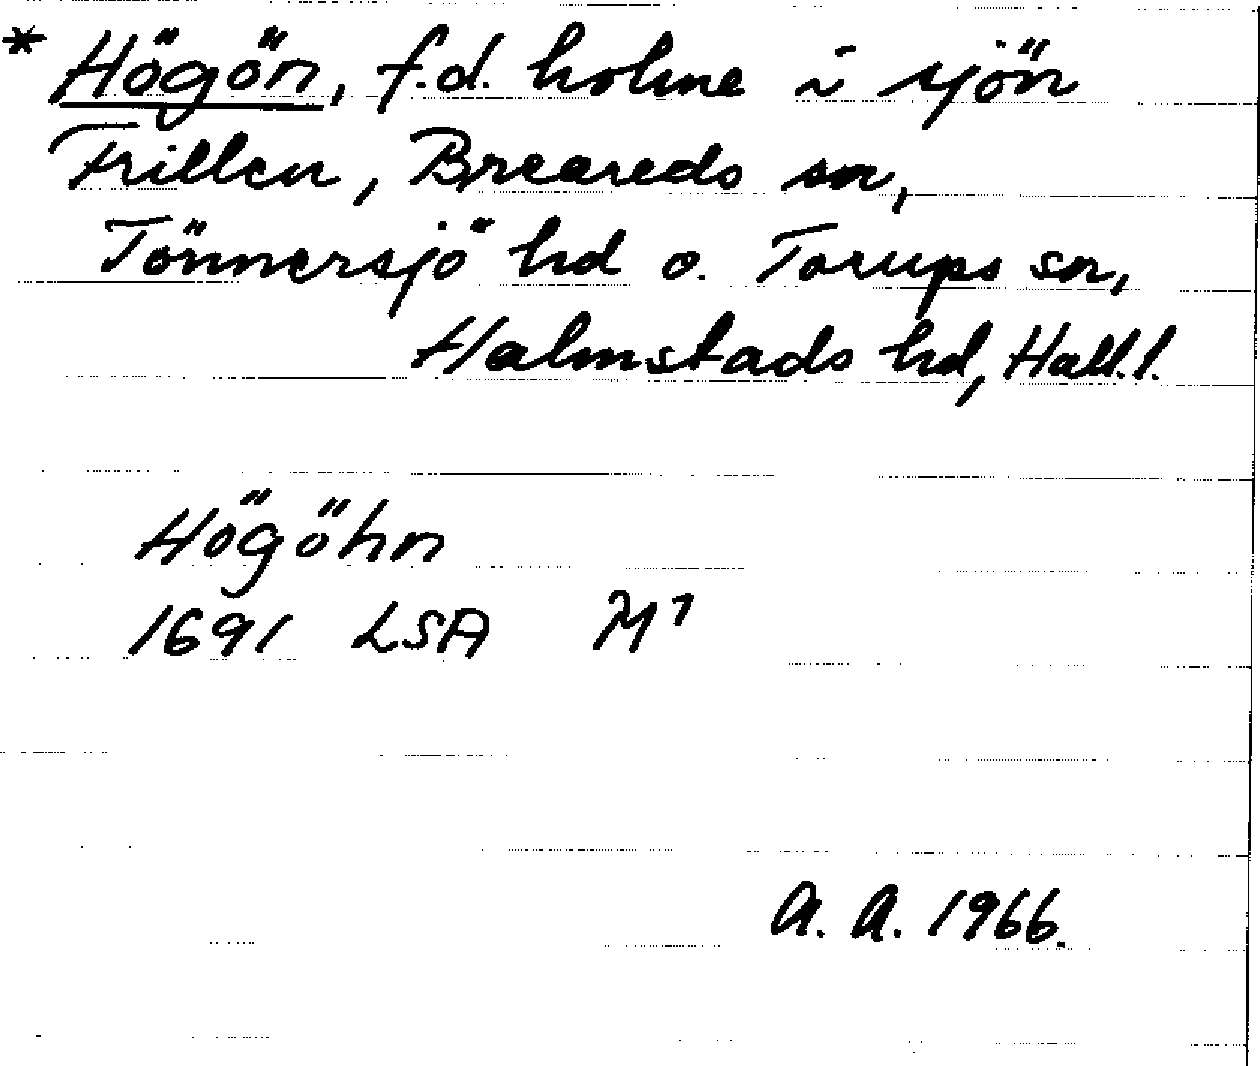 * Högön, f.d. holme i sjön
Frillen, Breareds sn,
Tönnersjö hd o. Torups sn,
Halmstads hd, Hall.l.
Högöhn
1691 LSA M⁷
A. A. 1966.